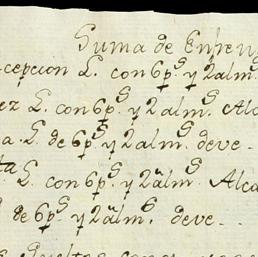 Suma de Enfren
cepcion L. con 6p.s y 2 alm.s
ez L. con 6p.s y 2 alm.s Alca
a L. de 6p.s y 2 alm.s deve -
ta L. con 6p.s y 2 alm.s Alca
de 6p.s y 2 alm.s deve -